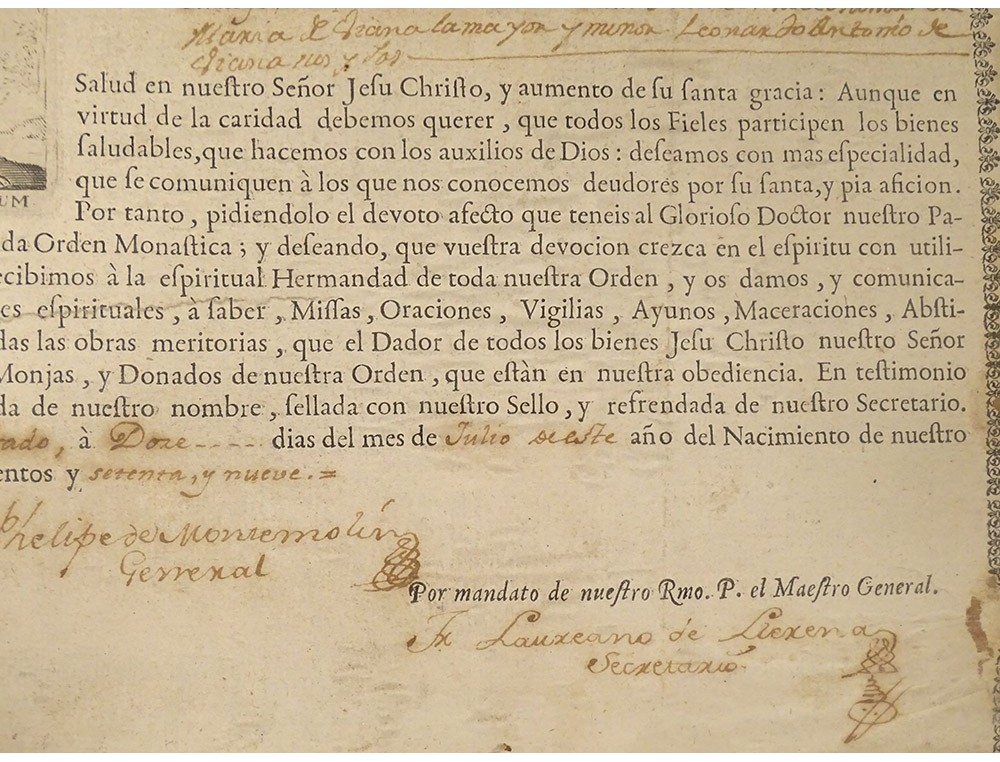 Maria de Viana la mayor y menor Leonardo Antonio de
Viana nos y los
Salud en nueſtro Señor Jeſu Chriſto, y aumento de ſu ſanta gracia: Aunque en
virtud de la caridad debemos querer, que todos los Fieles participen los bienes
ſaludables, que hacemos con los auxilios de Dios: deſeamos con mas eſpecialidad,
UM
que ſe comuniquen à los que nos conocemos deudores por ſu ſanta, y pia aficion.
Por tanto, pidiendolo el devoto afecto que teneis al Glorioſo Doctor nueſtro Pa-
da Orden Monaſtica; y deſeando, que vueſtra devocion crezca en el eſpiritu con utili-
ecibimos à la eſpiritual Hermandad de toda nueſtra Orden, y os damos, y comunica-
es eſpirituales, à ſaber, Miſſas, Oraciones, Vigilias, Ayunos, Maceraciones, Abſti-
das las obras meritorias, que el Dador de todos los bienes Jeſu Chriſto nueſtro Señor
Monjas, y Donados de nueſtra Orden, que eſtàn en nueſtra obediencia. En teſtimonio
da de nueſtro nombre, ſellada con nueſtro Sello, y refrendada de nueſtro Secretario.
rado, à Doze ---- dias del mes de Julio de este año del Nacimiento de nueſtro
entos y setenta, y nueve.=
Phelipe de Montemolin
General
Por mandato de nueſtro Rmo. P. el Maeſtro General.
Fr Laureano de Llerena
Secretario